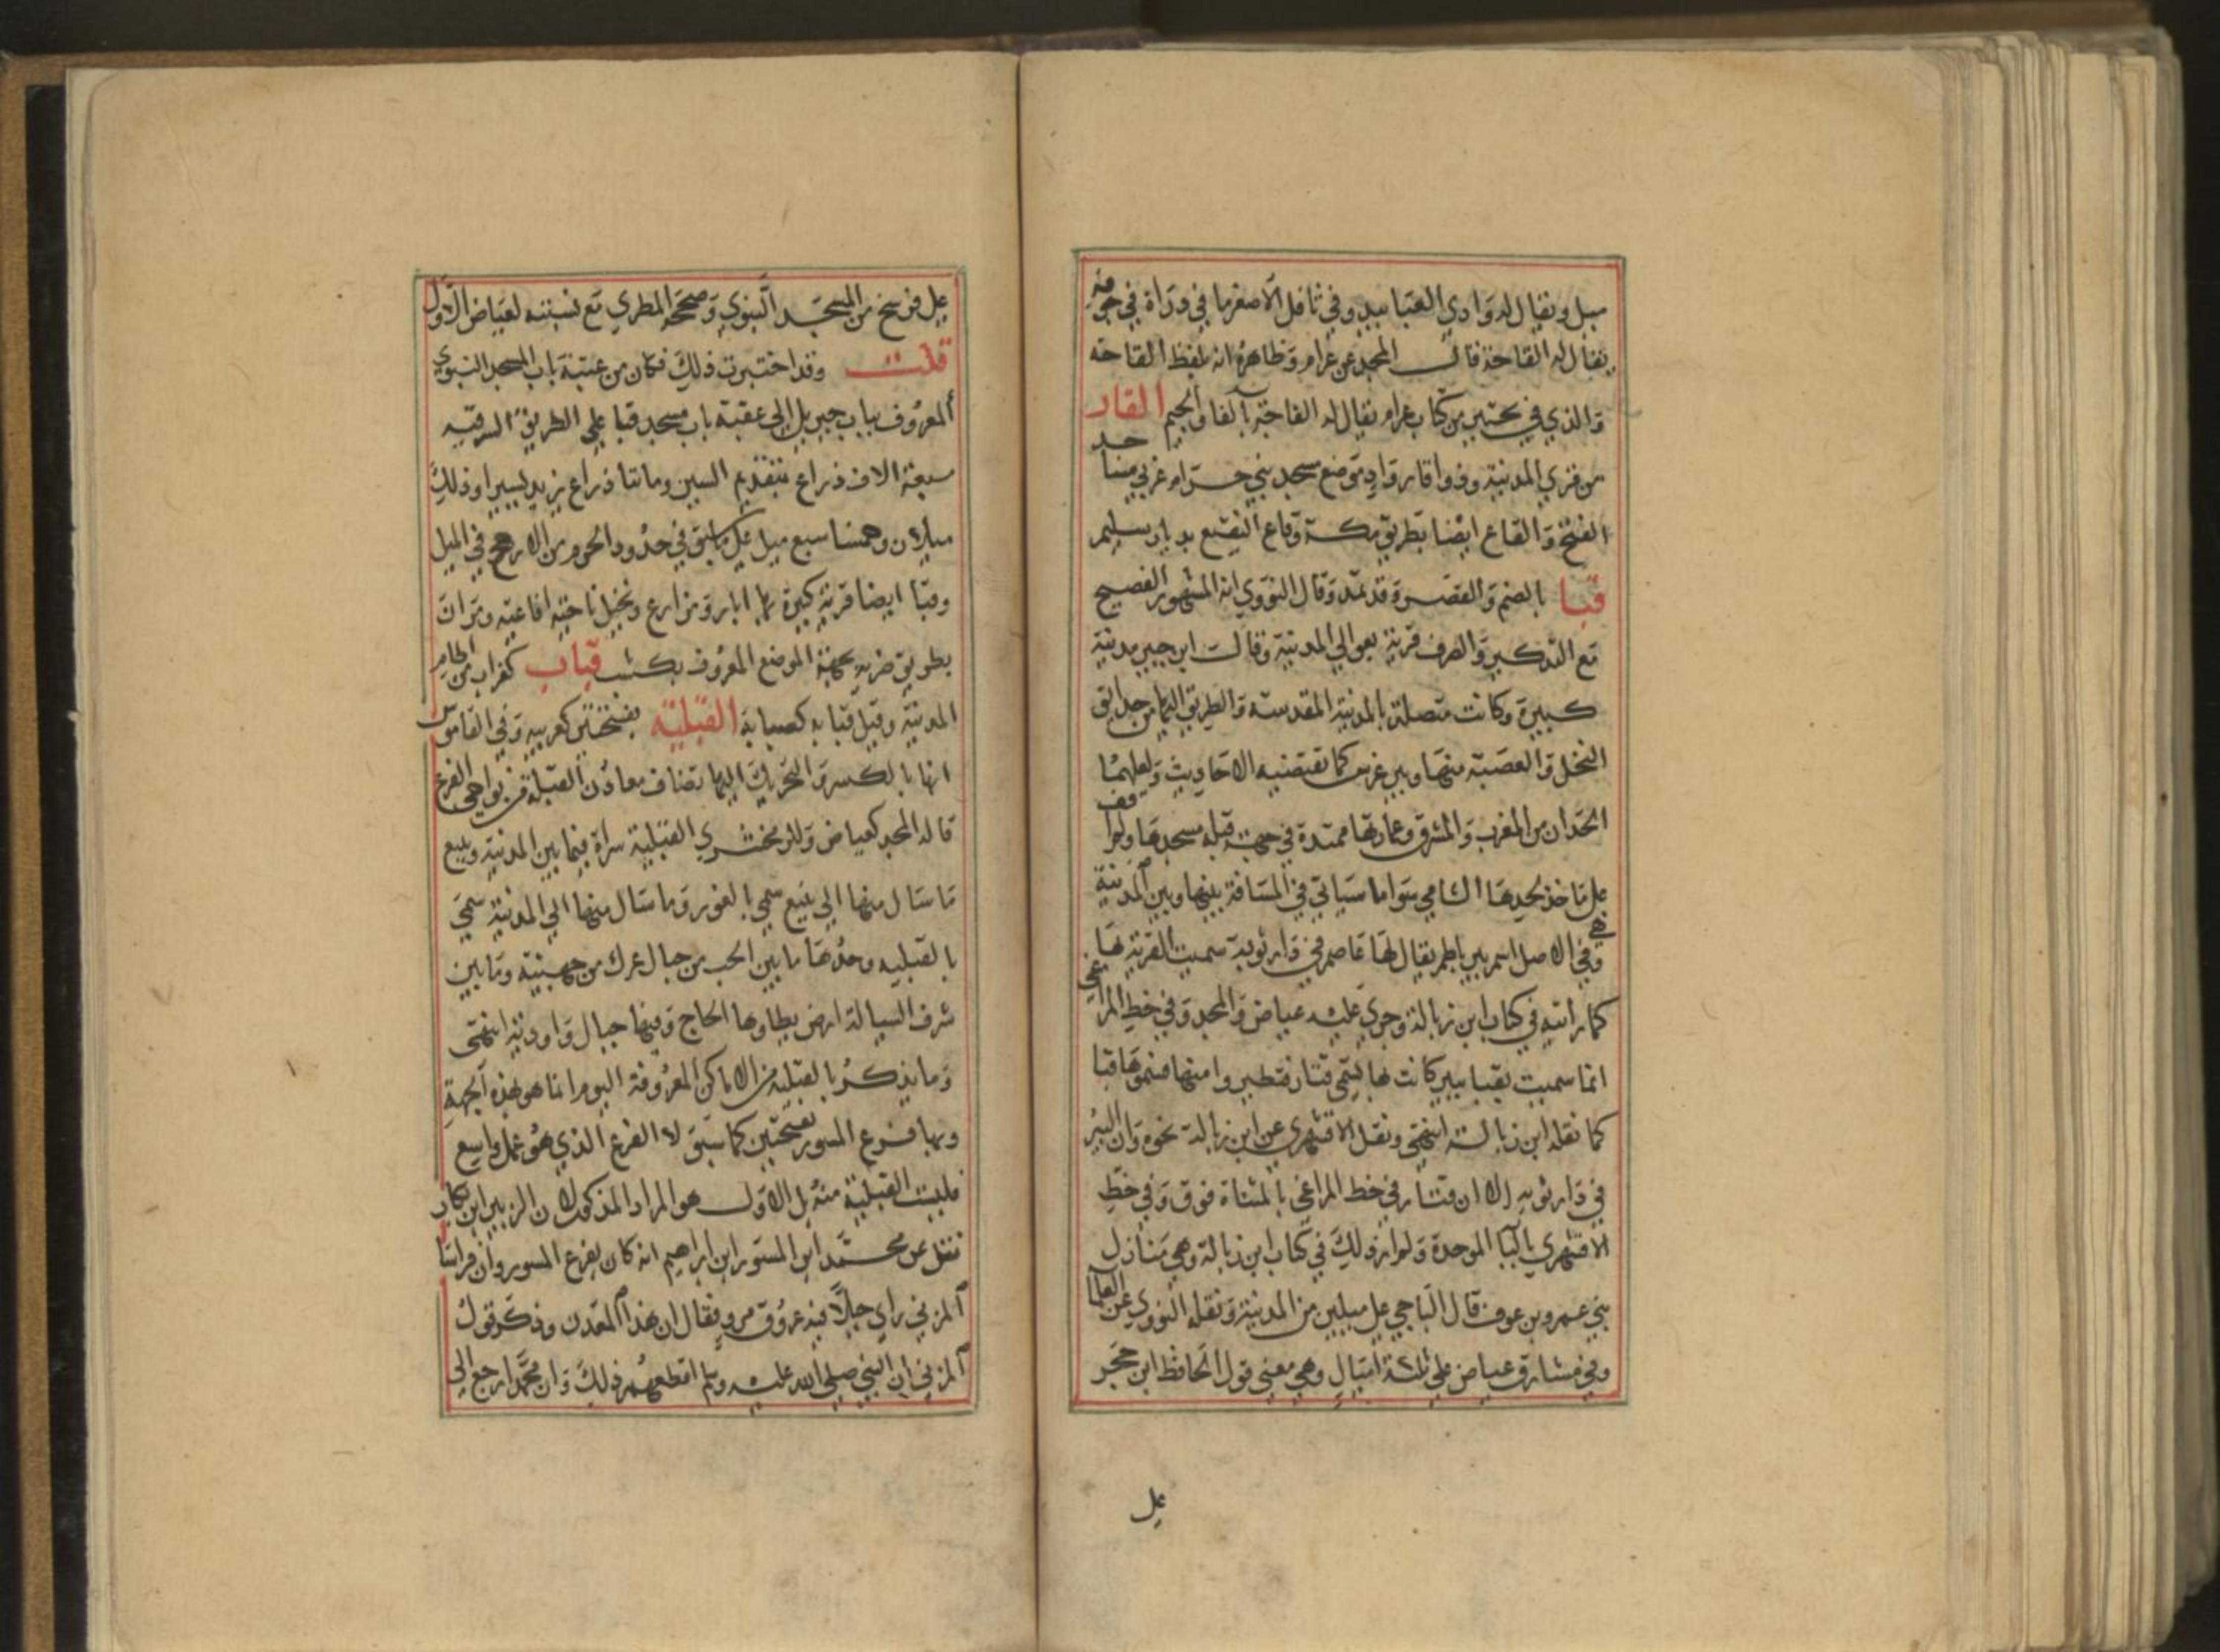 ميل ويقال له وادي العبابيد وفي ثافل الاصغر ما في دوراة في جوفه
يقال له القاحة قال المجد عن عرام وظاهره انه بلفظ القاحة
والذي في نسختين من كتاب عرام يقال له الفاجة بالفا والجيم القار
من قري المدينة وذو اقار واد موضع مسجد بني حرام غربي مساجد
الفتح والقاع ايضا بطريق مكة وقاع النقيع بديار سليم
قبا بالضم والقصر وقد تمد وقال النووي انه المشهور الفصيح
مع التذكير والصرف قرية بعوالي المدينة وقال ابن جبير مدينة
كبيرة وكانت متصلة بالمدينة المقدسة والطريق اليها من حدايق
النخل والعصبة منها وبير غرس كما تقتضيه الاحاديث ولعلهما
الحدان من المغرب والمشرق وعمارتها ممتدة في جهة قبلة مسجدها ولم اقف
علي ماخذ لحدها الشامي سوا ما سياتي في المسافة بينها وبين المدينة
وهي في الاصل اسم بير باطم يقال لها عاصم في دار ثوبة سميت القرية بها
كما رايته في كتاب ابن زبالة وجري عليه عياض والمجد وفي خط المراغي
انما سميت بقبا ببير كانت بها تسمي قتار فتطيروا منها فسموها قبا
كما نقله ابن زبالة انتهى ونقل الاقشهري عن ابن زبالة نحوه وان البير
في دار ثوبه الا ان قتار في خط المراغي بالمثناة فوق وفي خط
الاقشهري بالبا الموحدة ولم ار ذلك في كتاب ابن زبالة وهي منازل
بني عمرو بن عوف قال الباجي علي ميلين من المدينة ونقله النووي عن العلما
وفي مشارق عياض علي ثلثة اميال وهي معني قول الحافظ ابن حجر
علي
علي فرسخ من المسجد النبوي وصححه المطري مع نسبته لعياض الاول
قلت وقد اختبرت ذلك فكان من عتبة باب المسجد النبوي
المعروف بباب جبريل الي عقبة باب مسجد قبا علي الطريق الشرقيه
سبعة الاف ذراع بتقديم السين ومائتا ذراع يزيد يسيرا وذلك
ميلان وخمسا سبع ميل علي ما سبق في حدود الحرم من الارجح في الميل
وقبا ايضا قرية كبيرة بها ابار ومزارع ونخيل ناحية افاعيه ومران
بطريق ضريه بجهة الموضع المعروف بكشب قباب كغراب من اطام
المدينة وقيل قبابه كصبابة القبلية بفتحتين كعربيه وفي القاموس
انها بالكسر والتحريك اليها تضاف معادن القبلة من نواحي الفرع
قاله المجد كعياض وللزمخشري القبلية سراة فيما بين المدينة وينبع
ما سال منها الي ينبع سمي بالغور وما سال منها الي المدينة سمي
بالقبليه وحدها ما بين الحب من جبال عرك من جهينة وما بين
شرف السيالة ارض يطاوها الحاج وفيها جبال واودية انتهى
وما يذكر بالقبلية من الاماكن المعروفة اليوم انما هو بهذه الجهة
وبها فرع المسور بفتحتين كما سبق لا الفرع الذي هو عمل واسع
فليست القبلية منه بل الاول هو المراد المذكور لان الزبير ابن بكار
نقل عن محمد ابن المستور ابن ابراهيم انه كان بفرع المسور وان فراسا
المزني راي جبلا فيه عروق مرو فقال ان هذا المعدن وذكر قول
المزني ان النبي صلي الله عليه وسلم اقطعهم ذلك وان محمدا رجع الي